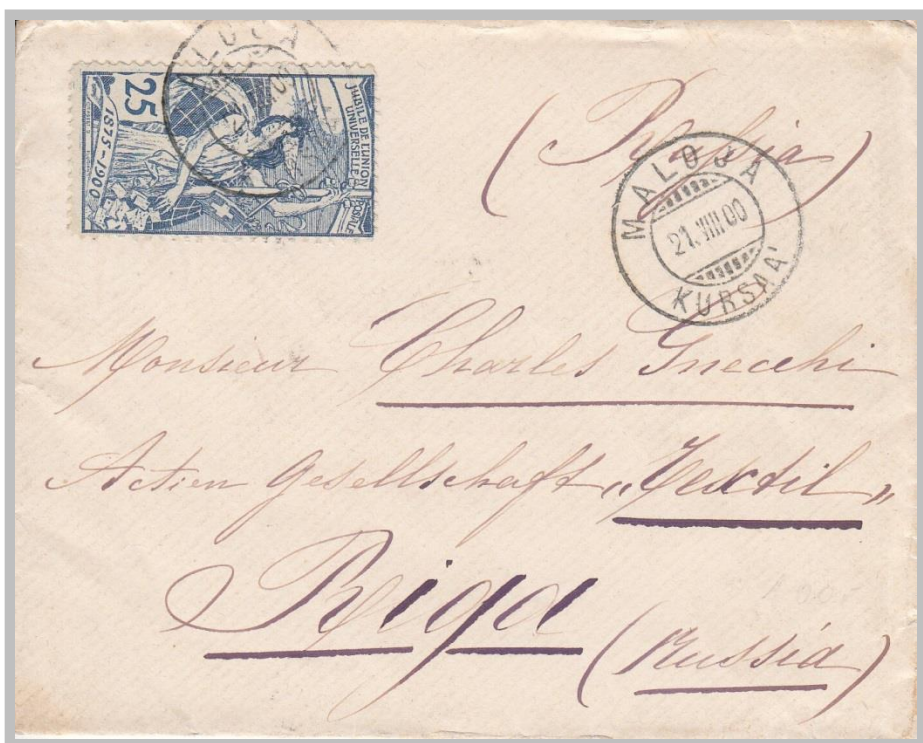 ALOJA
25
1875-1900
JUBILÉ DE L'UNION
UNIVERSELLE
POSTALE
(Russia)
MALOJA
21.VIII.00
KURSAAL
Monsieur Charles Gnecchi
Actien Gesellschaft „Textil"
Riga
(Russia)